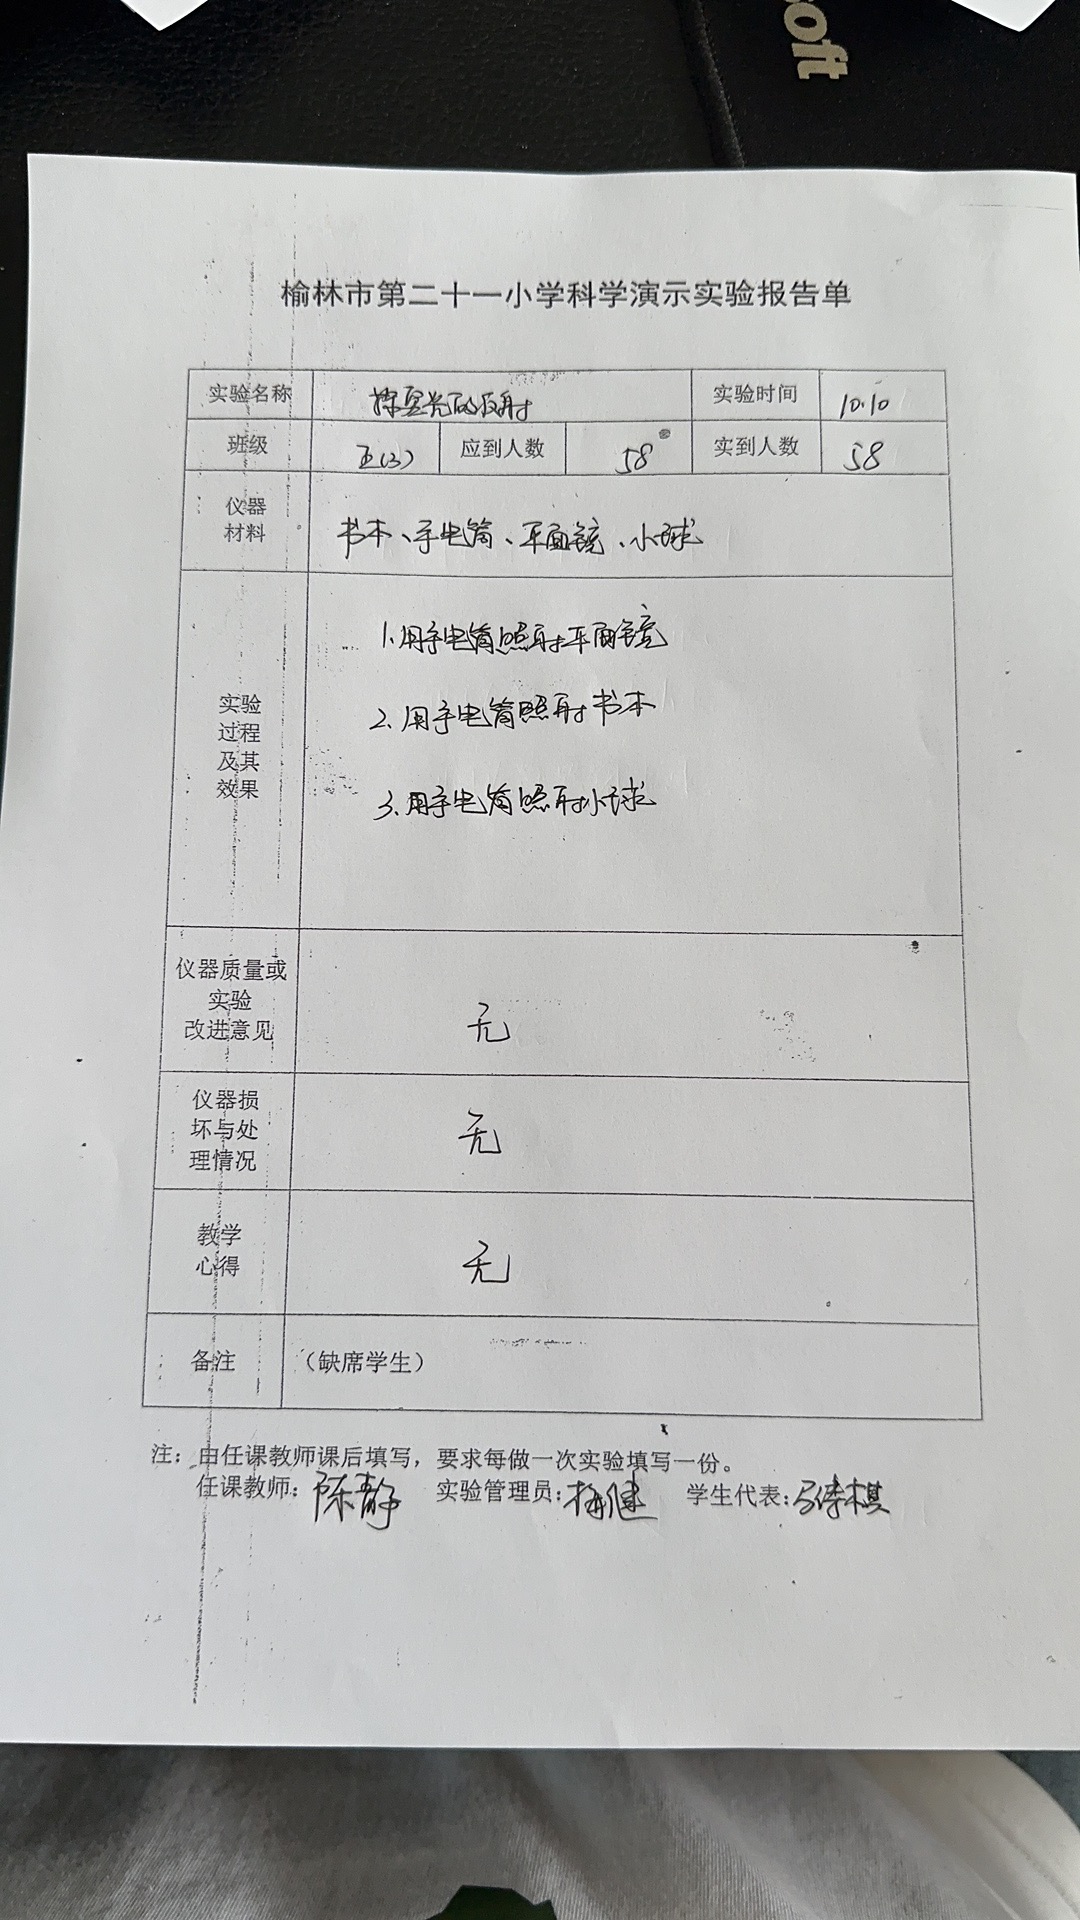 oft
榆林市第二十一小学科学演示实验报告单
实验名称 探究光的反射 实验时间 10.10
班级 五(3) 应到人数 58 实到人数 58
仪器
材料
书本、手电筒、平面镜、小球
实验
过程
及其
效果
1.用手电筒照射平面镜
2.用手电筒照射书本
3.用手电筒照射小球
仪器质量或
实验
改进意见
无
仪器损
坏与处
理情况
无
教学
心得
无
备注 （缺席学生）
注：由任课教师课后填写，要求每做一次实验填写一份。
任课教师：陈静 实验管理员： 学生代表：